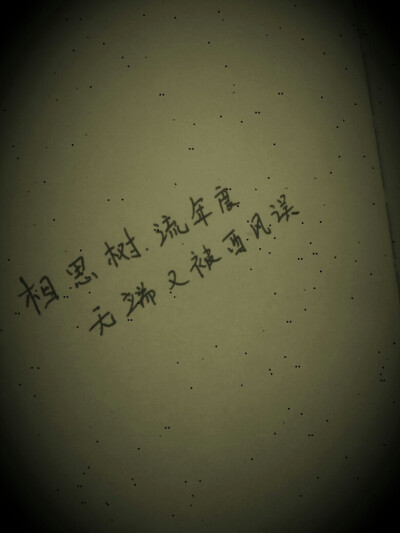 相思树.流年度
无端又被西风误